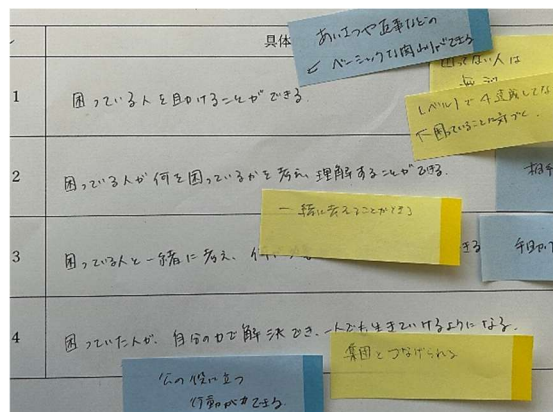 具体
あいさつや返事などの
ベーシックな関わりができる
困ってない人は
レベル1で4達成してな
困っていることに気づく。
1 困っている人を助けることができる。
2 困っている人が何を困っているかを考え、理解することができる。
相手
一緒に考えてことができる
3 困っている人と一緒に考え、
きる
手助け
4 困っていた人が、自分の力で解決でき、一人でも生きていけるようになる。
集団とつなげられる
公の役に立つ
行動ができる。